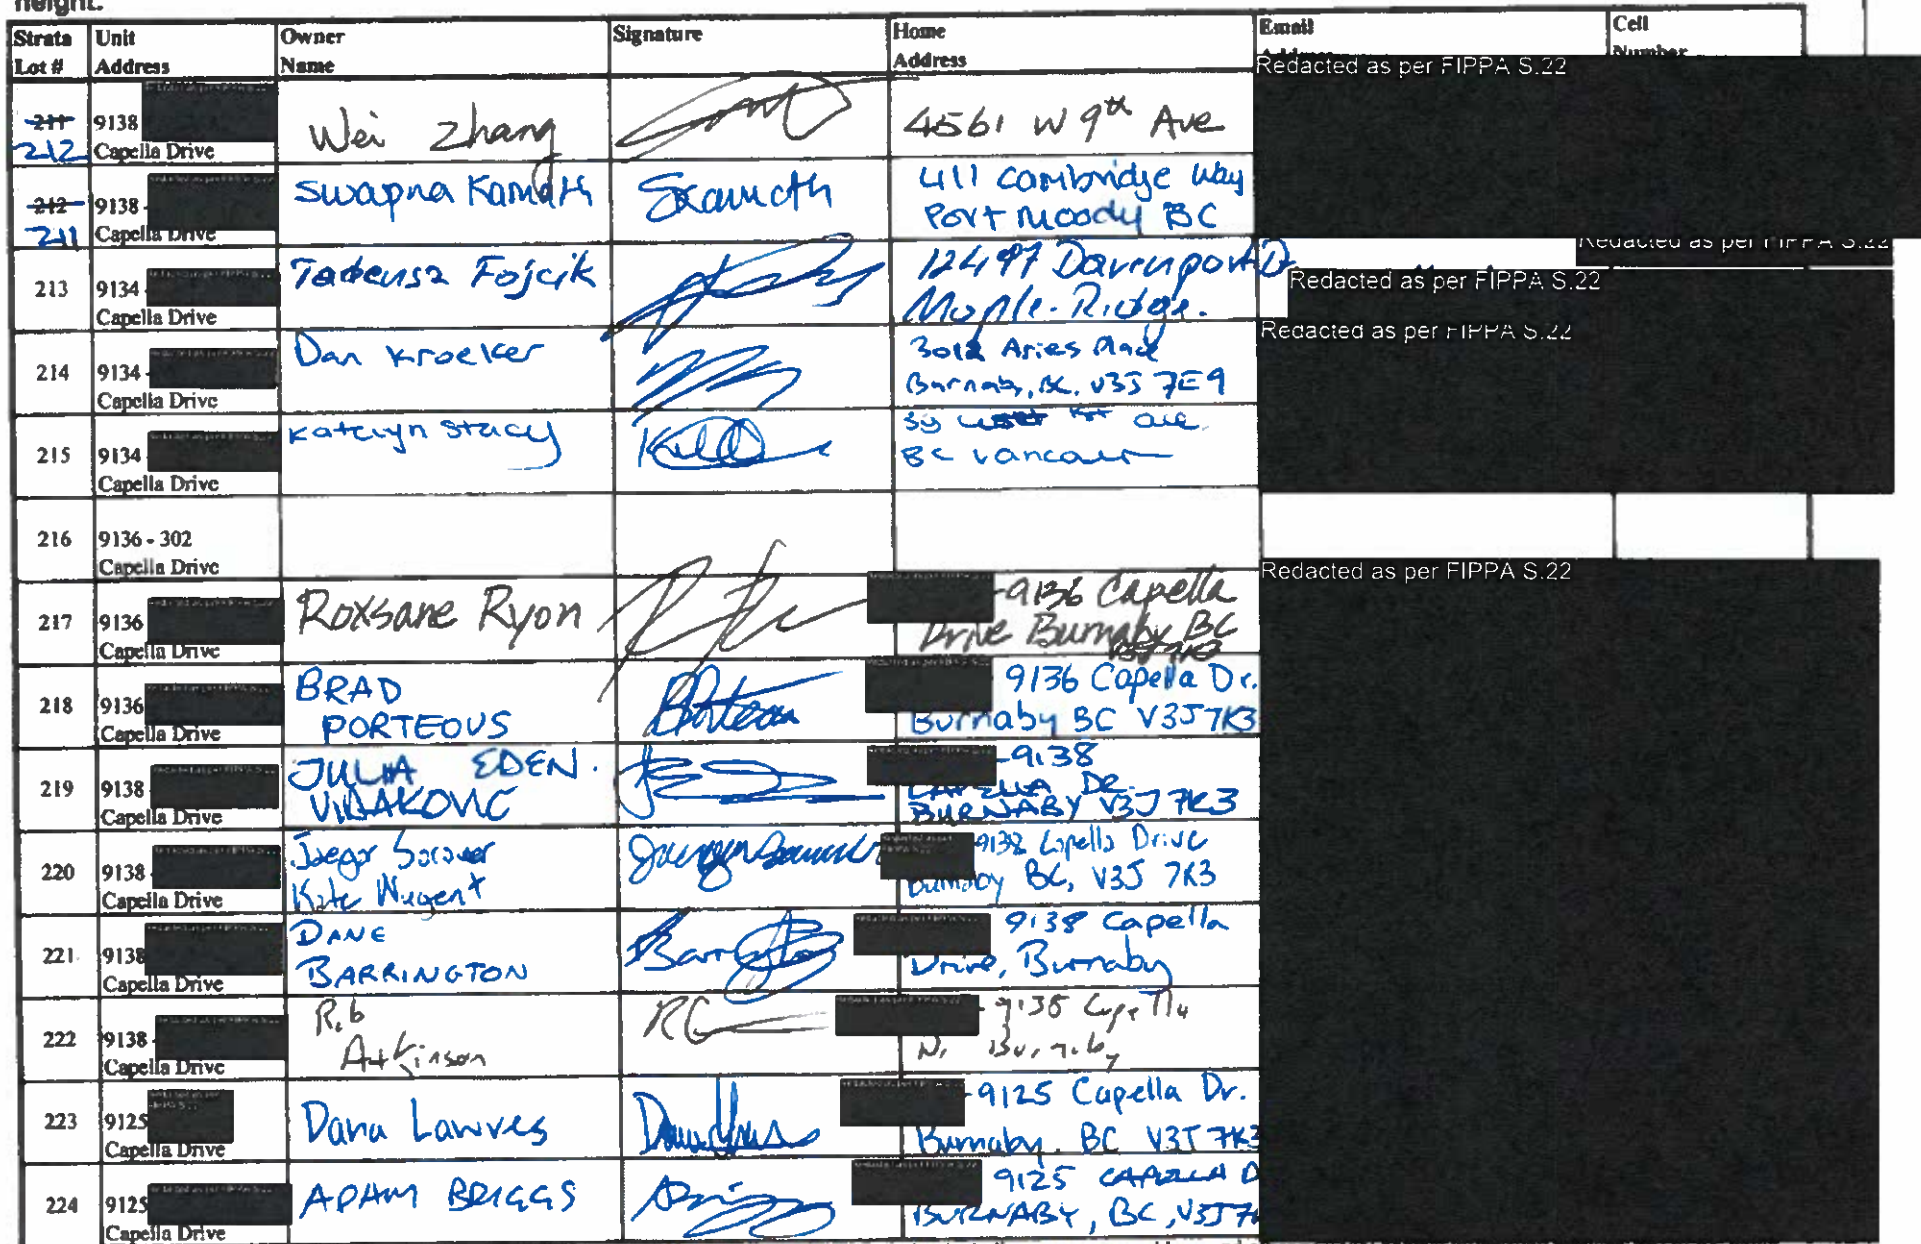 height.
Strata Lot # Unit Address Owner Name Signature Home Address Email Address Cell Number
Redacted as per FIPPA S.22
211 212 9138 Capella Drive Wei Zhang 4561 W 9th Ave
212 211 9138 - Capella Drive Swapna Kamath SKamath 411 Cambridge Way
Port Moody BC
Redacted as per FIPPA S.22
213 9134 Capella Drive Tadeusz Fojcik 12497 Davenport D
Maple Ridge.
Redacted as per FIPPA S.22
214 9134 - Capella Drive Dan Kroeker 3012 Aries Place
Burnaby, BC. V3J 7E9
Redacted as per FIPPA S.22
215 9134 Capella Drive Katelyn Stacy ave.
BC Vancouver
216 9136 - 302 Capella Drive
217 9136 Capella Drive Roxsane Ryon -9136 Capella
Drive Burnaby BC
V3J 7K3
Redacted as per FIPPA S.22
218 9136 Capella Drive BRAD
PORTEOUS 9136 Capella Dr.
Burnaby BC V3J 7K3
219 9138 - Capella Drive JULIA EDEN.
VIDAKOVIC -9138
CAPELLA DR.
BURNABY V3J 7K3
220 9138 Capella Drive Kate Nugent 9138 Capella Drive
Burnaby BC, V3J 7K3
221 9138 Capella Drive DANE
BARRINGTON 9138 Capella
Drive, Burnaby
222 9138 - Capella Drive Rob
Atkinson - 9138 Capella
Burnaby
223 9125 Capella Drive Dana Lawres -9125 Capella Dr.
Burnaby. BC V3J 7K3
224 9125 Capella Drive ADAM BRIGGS 9125 CAPELLA D
BURNABY, BC, V3J 7K